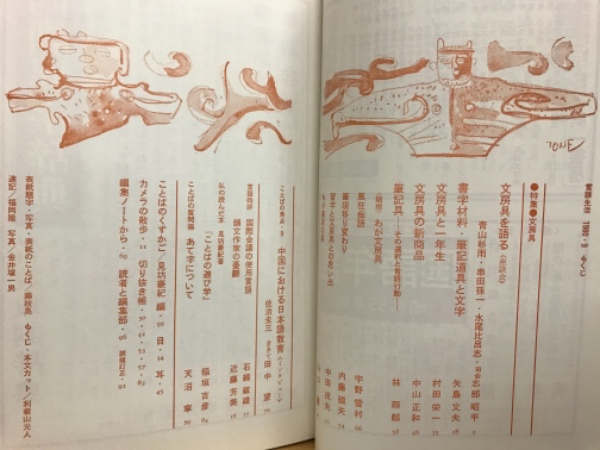 言語生活
もくじ
●特集●文房具
文房具を語る（座談会）
青山杉雨・串田孫一・水尾比呂志・司会志部昭平
書字材料・筆記道具と文字
矢島文夫
文房具と一年生
村田栄一
文房具の新商品
中山正和
筆記具
その選択と普段行動
林四郎
わが文房具
風狂痴語
宇野雪村
筆墨移り変わり
内藤國夫
ことばの焦点
中国における日本語教育
佐治圭三
ききて田中望
言語時評
国際会議の使用言語
石綿敏雄
顔文作家の素顔
近藤芳美
私の読んだ本
見坊豪紀著
『ことばの遊び学』
稲垣吉彦
ことばの質問箱
あて字について
天沼寧
ことばのくずかご/見坊豪紀
目
耳
カメラの散歩
切り抜き帳
編集ノートから
読者と編集部
表紙題字・写真・表紙のことば/藤枝晃
もくじ・本文カット/利根山光人
速記/福岡隆
写真/金井塚一男